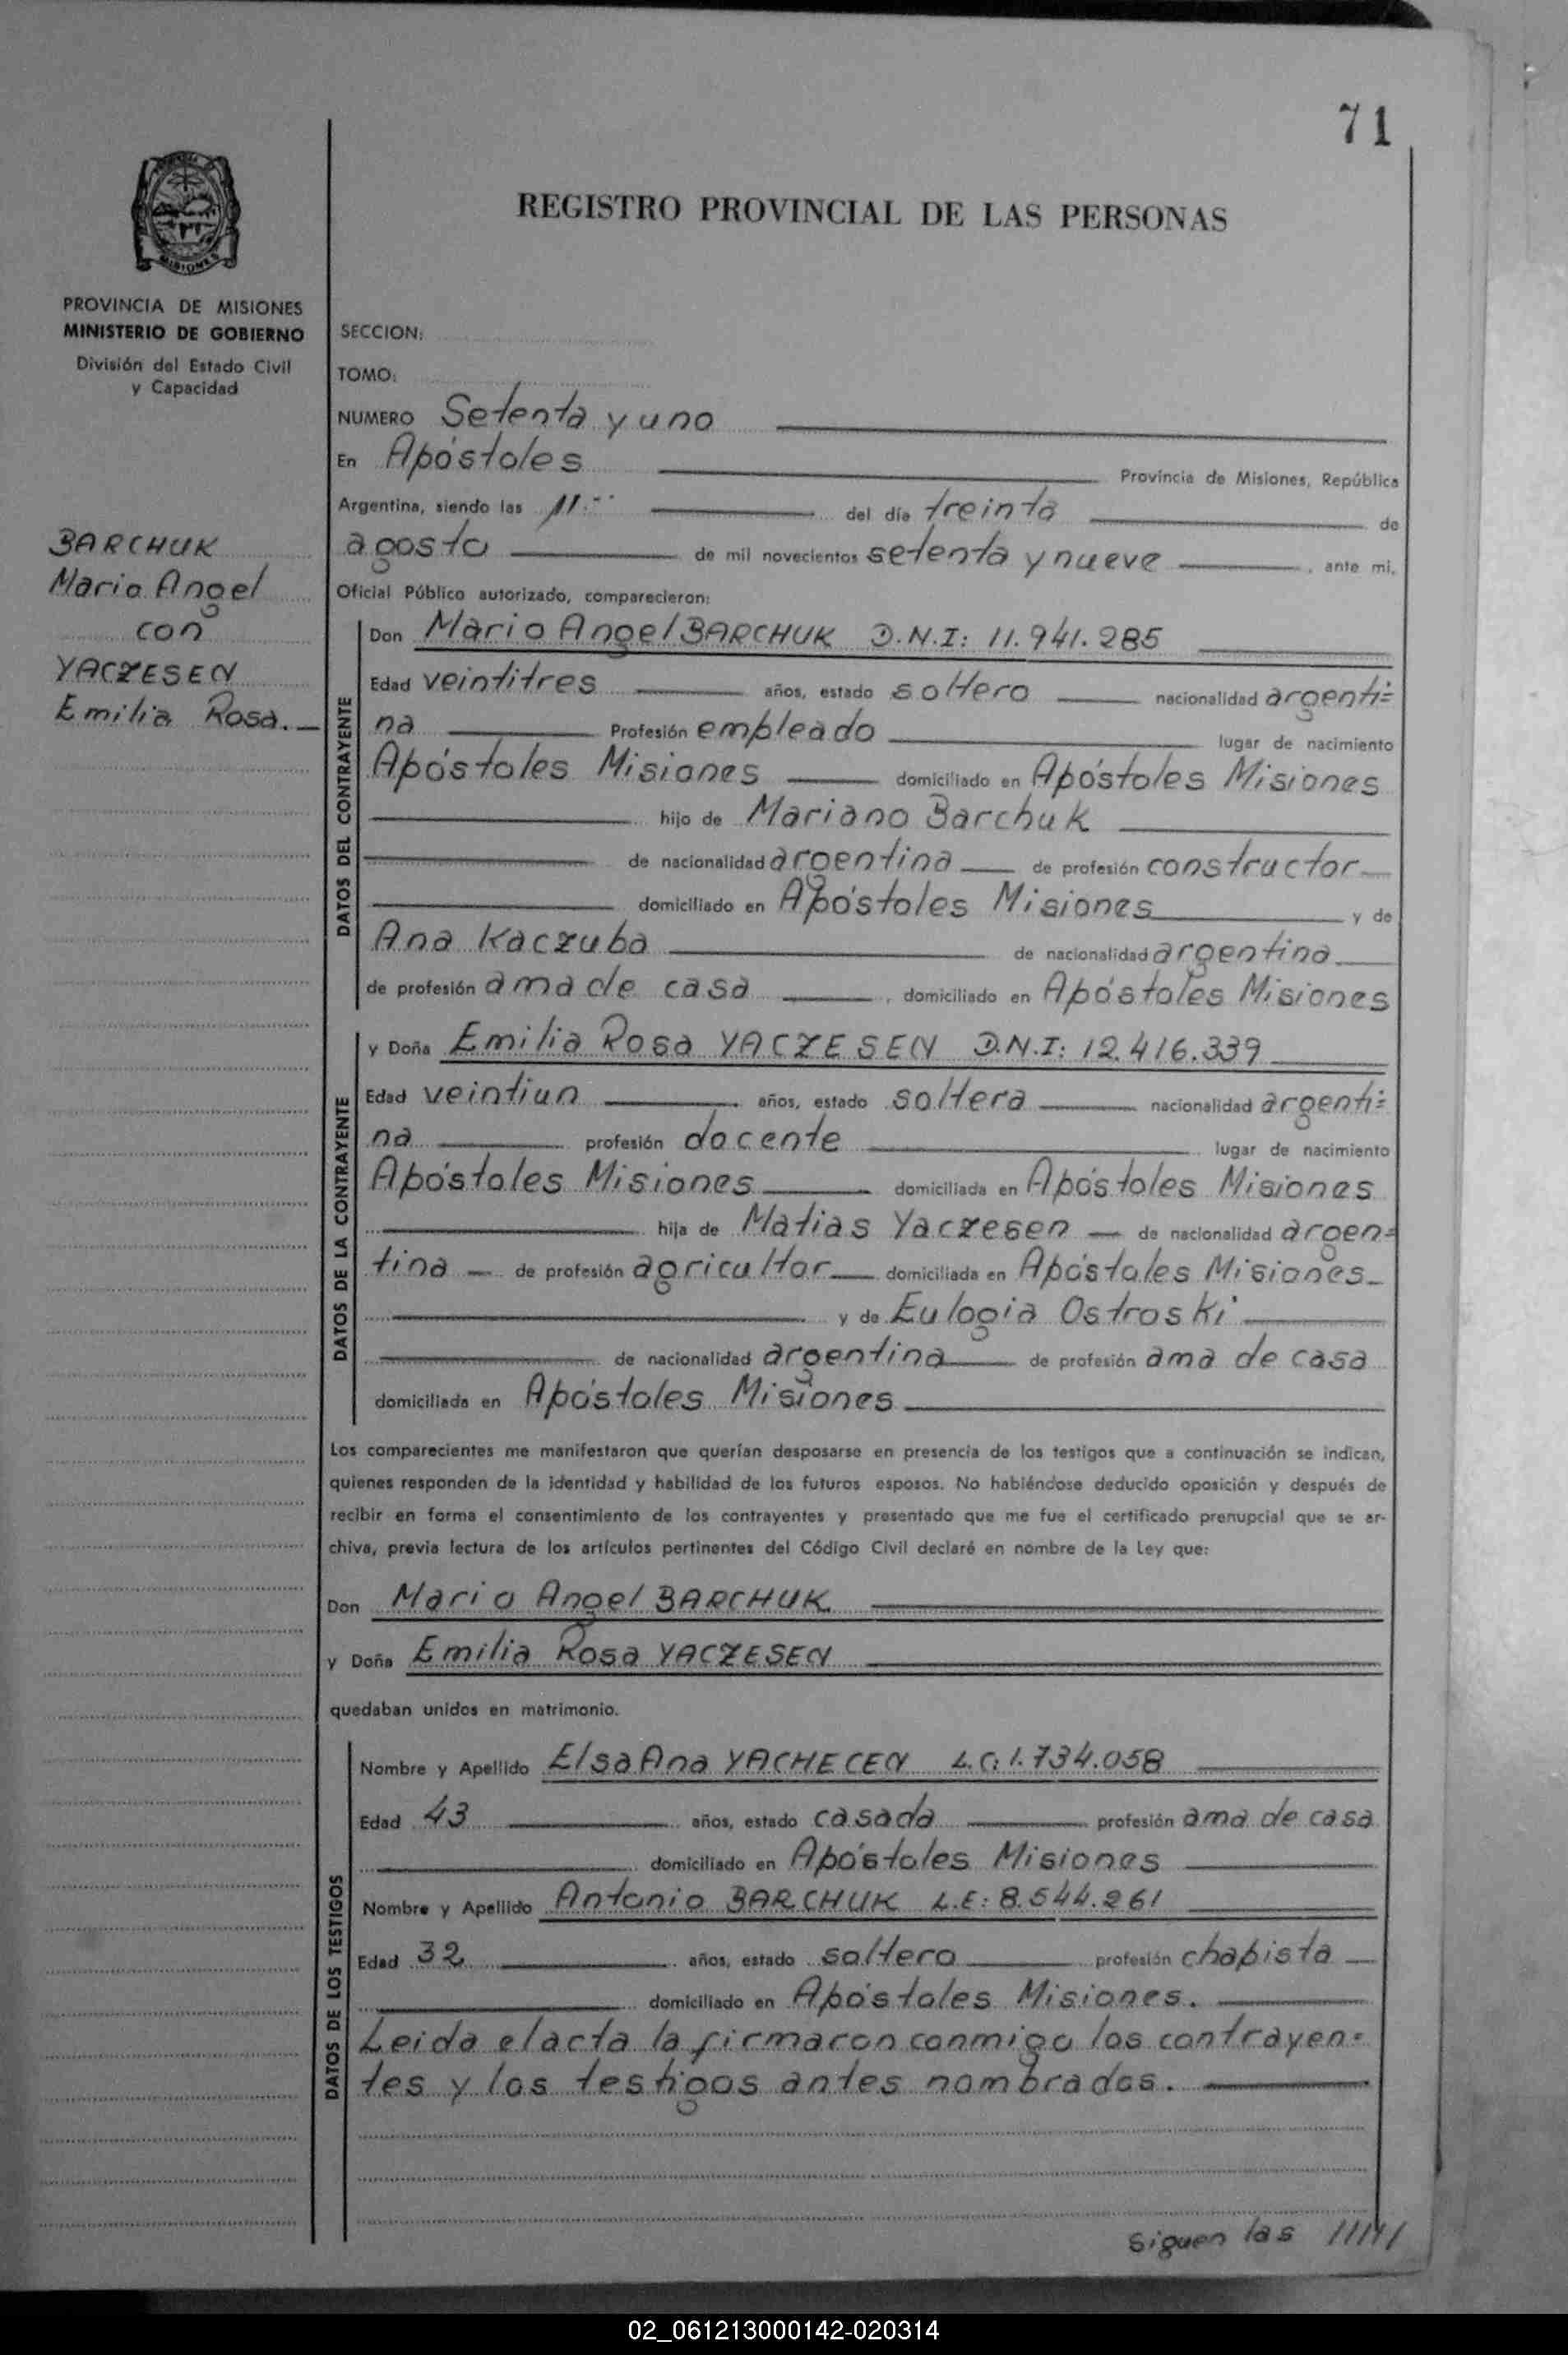 71
REGISTRO PROVINCIAL DE LAS PERSONAS
MISIONES
PROVINCIA DE MISIONES
MINISTERIO DE GOBIERNO
División del Estado Civil
y Capacidad
BARCHUK
Mario Angel
con
YACZESEN
Emilia Rosa.
SECCION:
TOMO:
NUMERO Setenta y uno
En Apóstoles Provincia de Misiones, República
Argentina, siendo las 11.-- del día treinta de
agosto de mil novecientos setenta y nueve, ante mi,
Oficial Público autorizado, comparecieron:
DATOS DEL CONTRAYENTE
Don Mario Angel BARCHUK D.N.I: 11.941.285
Edad veintitres años, estado soltero nacionalidad argenti=
na Profesión empleado lugar de nacimiento
Apóstoles Misiones domiciliado en Apóstoles Misiones
hijo de Mariano Barchuk
de nacionalidad argentina de profesión constructor
domiciliado en Apóstoles Misiones y de
Ana Kaczuba de nacionalidad argentina
de profesión ama de casa, domiciliado en Apóstoles Misiones
DATOS DE LA CONTRAYENTE
y Doña Emilia Rosa YACZESEN D.N.I: 12.416.339
Edad veintiun años, estado soltera nacionalidad argenti=
na profesión docente lugar de nacimiento
Apóstoles Misiones domiciliada en Apóstoles Misiones
hija de Matias Yaczesen de nacionalidad argen=
tina de profesión agricultor domiciliada en Apóstoles Misiones
y de Eulogia Ostroski
de nacionalidad argentina de profesión ama de casa
domiciliada en Apóstoles Misiones
Los comparecientes me manifestaron que querían desposarse en presencia de los testigos que a continuación se indican,
quienes responden de la identidad y habilidad de los futuros esposos. No habiéndose deducido oposición y después de
recibir en forma el consentimiento de los contrayentes y presentado que me fue el certificado prenupcial que se ar-
chiva, previa lectura de los artículos pertinentes del Código Civil declaré en nombre de la Ley que:
Don Mario Angel BARCHUK
y Doña Emilia Rosa YACZESEN
quedaban unidos en matrimonio.
DATOS DE LOS TESTIGOS
Nombre y Apellido Elsa Ana YACHECEN L.C: 1.734.058
Edad 43 años, estado casada profesión ama de casa
domiciliado en Apóstoles Misiones
Nombre y Apellido Antonio BARCHUK L.E: 8.544.261
Edad 32 años, estado soltero profesión chapista
domiciliado en Apóstoles Misiones.
Leida el acta la firmaron conmigo los contrayen=
tes y los testigos antes nombrados.
Siguen las /////
02_061213000142-020314